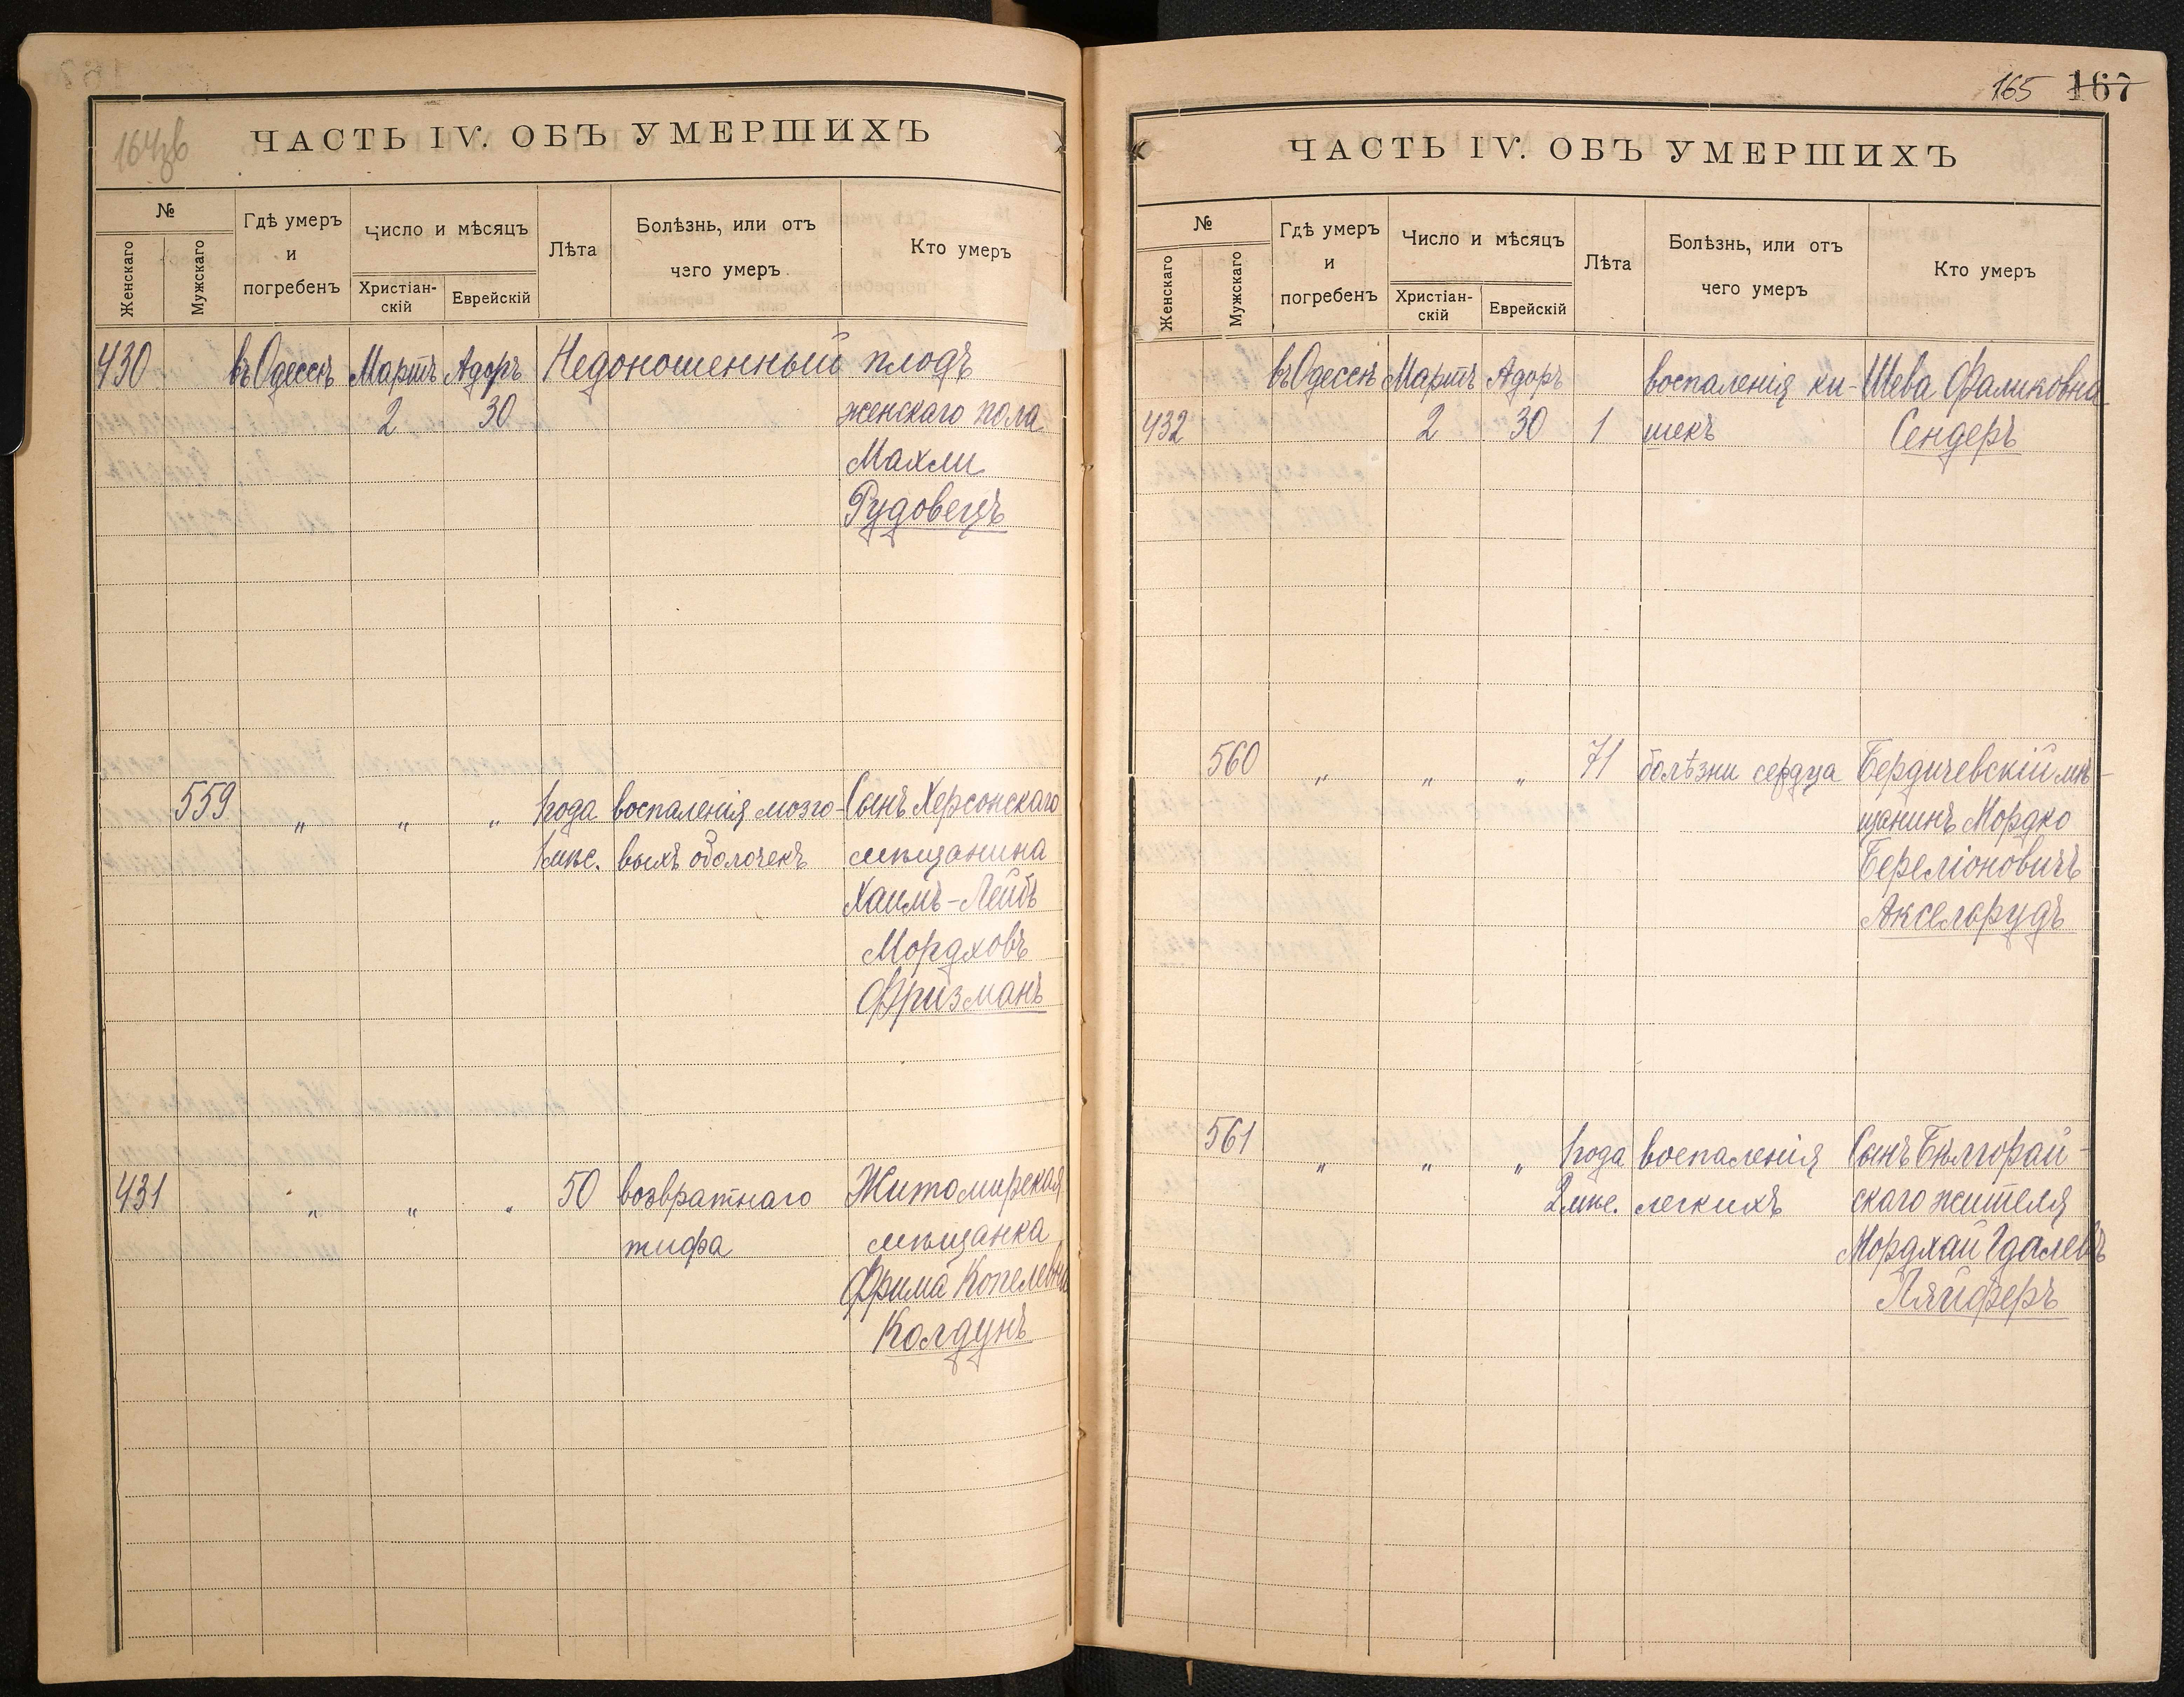 164зв
ЧАСТЬ IV. ОБЪ УМЕРШИХЪ
№
Женскаго
Мужскаго
Гдѣ умеръ
и
погребенъ
Число и мѣсяцъ
Христіан-
скій
Еврейскій
Лѣта
Болѣзнь, или отъ
чего умеръ
Кто умеръ
430 въ Одессѣ Мартъ Адоръ Недоношенный плодъ
2 30 женскаго пола
Махли
Рудовецъ
559 „ „ „ 1 года воспаленія мозго- Сынъ Херсонскаго
1 мѣс. выхъ оболочекъ мѣщанина
Хаимъ-Лейбъ
Мордховъ
Фризманъ
431 „ „ „ 50 возвратнаго Житомирская
тифа мѣщанка
Фрима Копелевна
Колдунъ
165 167
ЧАСТЬ IV. ОБЪ УМЕРШИХЪ
№
Женскаго
Мужскаго
Гдѣ умеръ
и
погребенъ
Число и мѣсяцъ
Христіан-
скій
Еврейскій
Лѣта
Болѣзнь, или отъ
чего умеръ
Кто умеръ
въ Одессѣ Мартъ Адоръ воспаленія ки- Шева Фаликовна
432 2 30 1 шекъ Сендеръ
560 „ „ „ 71 болѣзни сердца Бердичевскій мѣ-
щанинъ Мордко
Береліоновичъ
Аксельрудъ
561 „ „ „ 1 года воспаленія Сынъ Бѣлгорай-
2 мѣс. легкихъ скаго жителя
Мордхай Гдалевъ
Ляйферъ